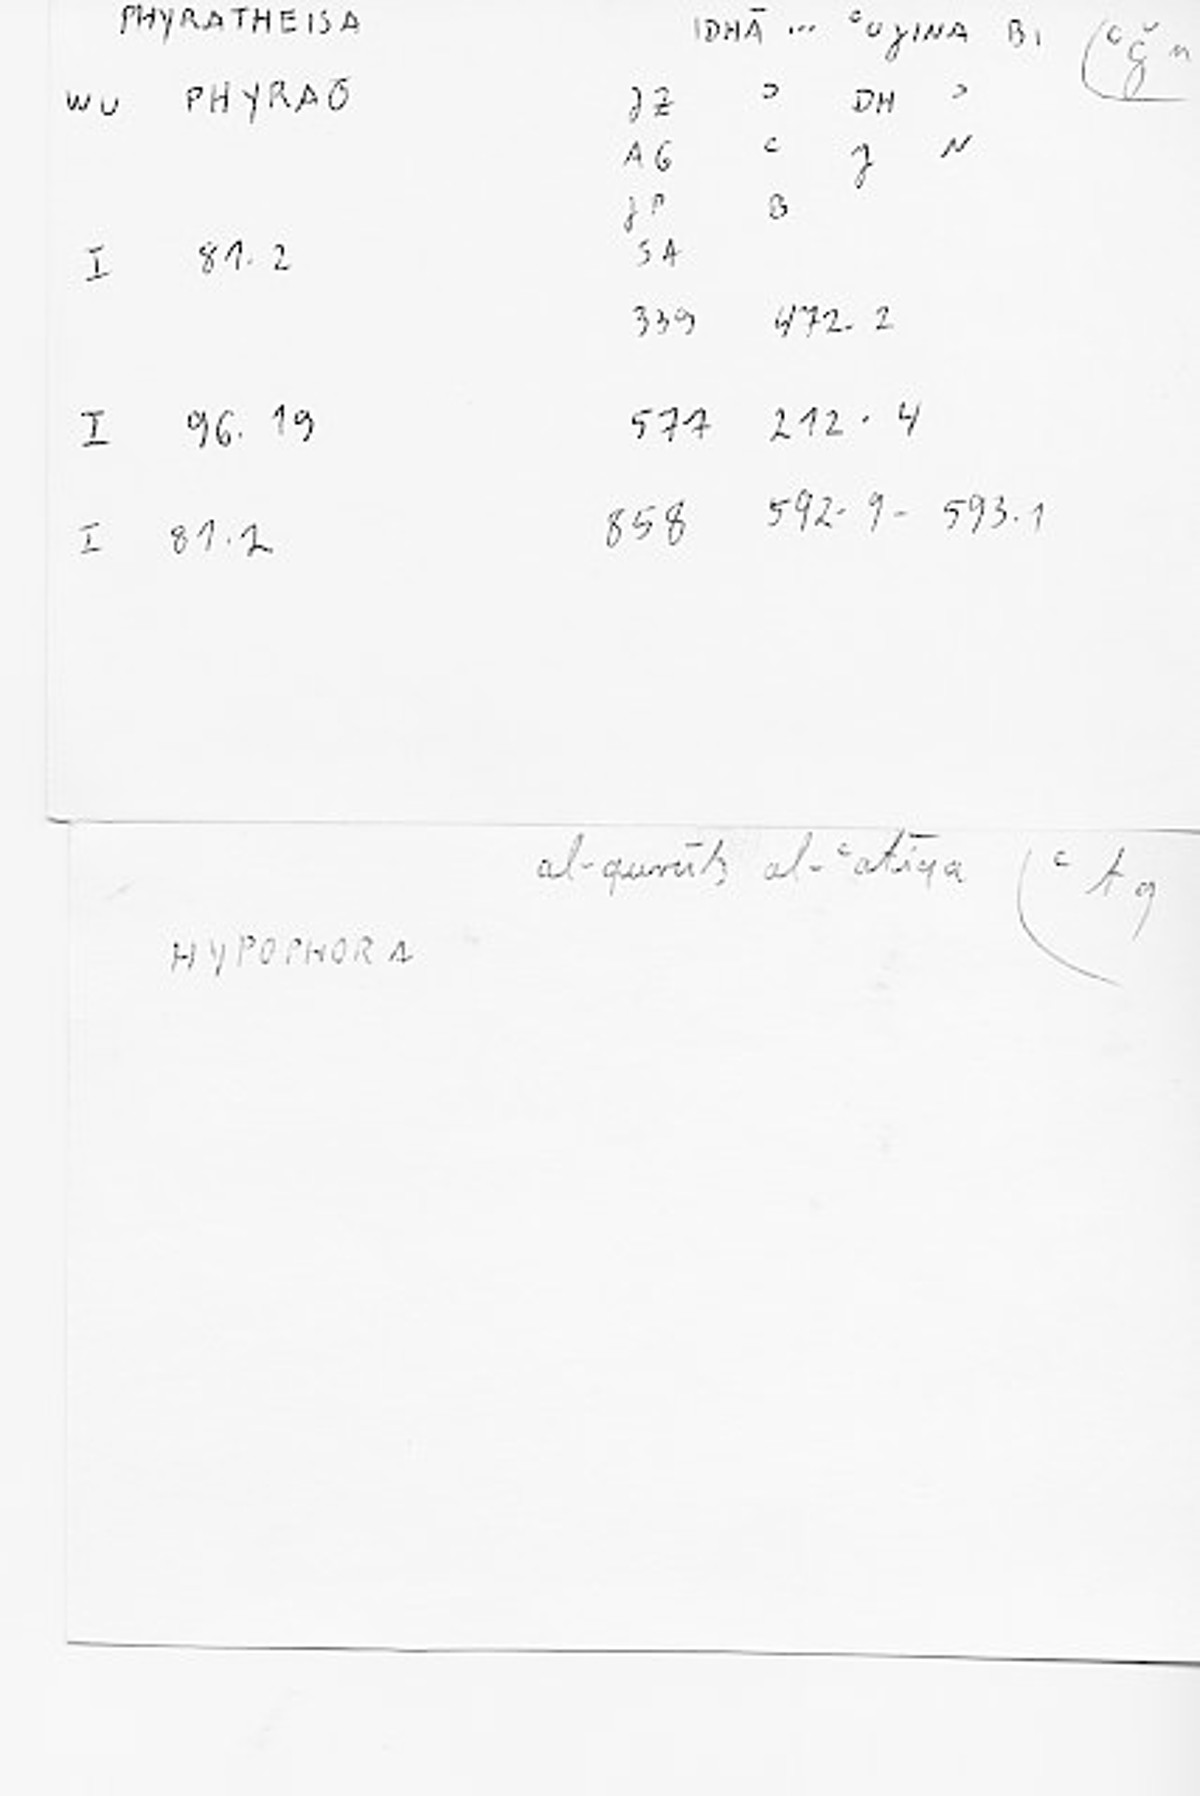 PHYRATHEISA IDHĀ ... ʿUJINA BI (ʿǧn
WU PHYRAŌ JZ ʾ DH ʾ
AG ʿ J N
JP B
I 81.2 SA
339 472.2
I 96.19 577 212.4
I 81.2 858 592.9-593.1
al-qurūḥ al-ʿatīqa (ʿtq
HYPOPHORA